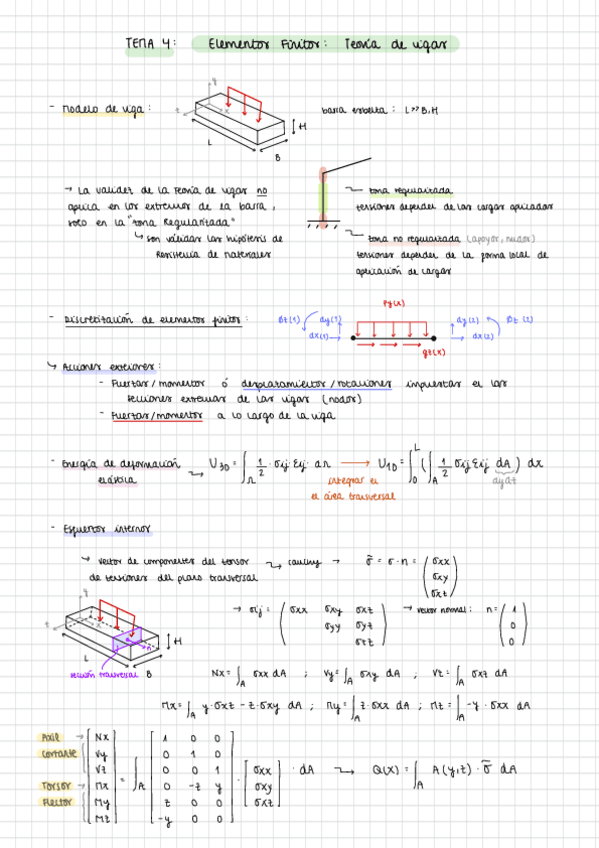 TEMA 4: Elementos Finitos: Teoría de vigas
- Modelo de viga:
barra esbelta: L >> B, H
y
z
x
L
B
H
→ La validez de la teoría de vigas no
aplica en los extremos de la barra,
solo en la "zona Regularizada"
↳ son válidas las hipótesis de
Resistencia de materiales
zona regularizada
tensiones depender de las cargas aplicadas
zona no regularizada (apoyos, nudos)
tensiones depender de la forma local de
aplicación de cargas
- Discretización de elementos finitos:
θz(1) dy(1) dx(1)
Py(x)
qx(x)
dy(2) θz(2) dx(2)
↳ Acciones exteriores:
- Fuerzas/momentos ó desplazamientos/rotaciones impuestas el las
secciones extremas de las vigas (nodos)
- Fuerzas/momentos a lo largo de la viga
- Energía de deformación
elástica
U3D = ∫Ω 1/2 · σij · εij · dΩ → U1D = ∫0L (∫A 1/2 σij εij dA) dx
integrar en
el área transversal
dydz
- Esfuerzos internos
↳ vector de componentes del tensor
de tensiones del plano transversal
cauchy → σ̃ = σ · n = (σxx
σxy
σxz)
→ σij = (σxx σxy σxz
σyy σyz
σzz)
→ vector normal: n = (1
0
0)
L
B
H
n
sección transversal
Nx = ∫A σxx dA ; Vy = ∫A σxy dA ; Vz = ∫A σxz dA
Mx = ∫A y·σxz - z·σxy dA ; My = ∫A z·σxx dA ; Mz = ∫A -y·σxx dA
Axil → [Nx] [1 0 0]
Cortante → [Vy] [0 1 0]
[Vz] [0 0 1] [σxx]
Torsor → [Mx] = ∫A [0 -z y] · [σxy] · dA → Q(x) = ∫A A(y,z) · σ̃ dA
Flector → [My] [z 0 0] [σxz]
[Mz] [-y 0 0]